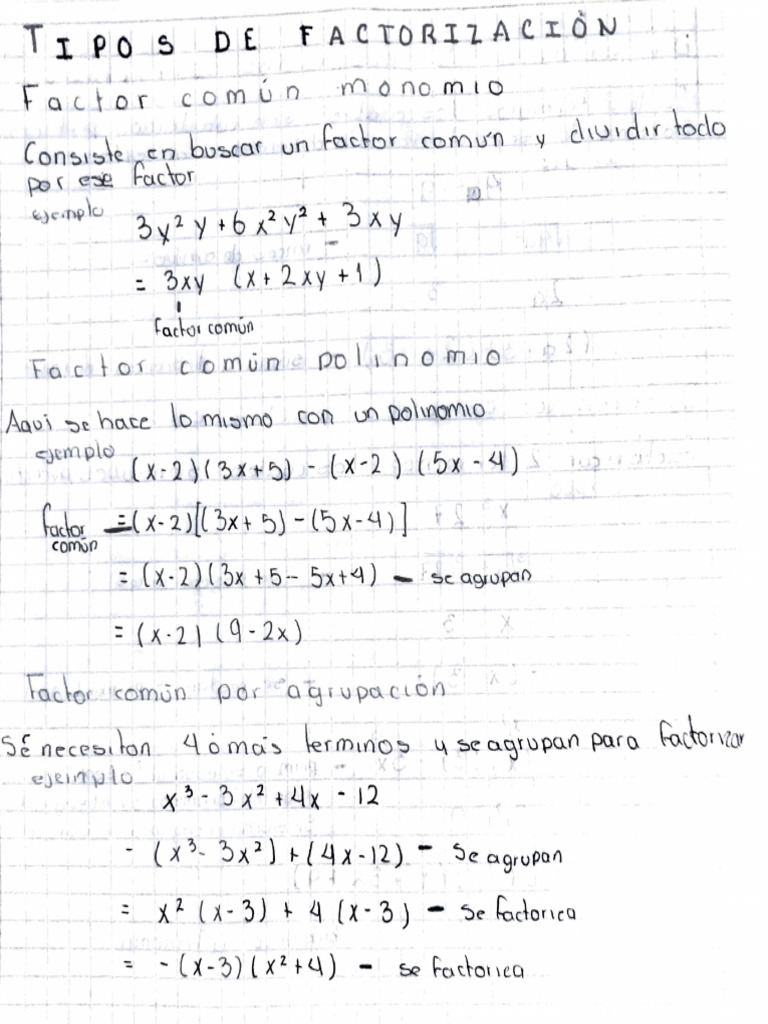 TIPOS DE FACTORIZACIÓN
Factor común monomio
Consiste en buscar un factor común y dividir todo
por ese factor
ejemplo
3y² y + 6x²y² + 3xy
= 3xy (x + 2xy + 1)
factor común
Factor común polinomio
Aqui se hace lo mismo con un polinomio
ejemplo
(x-2)(3x+5) - (x-2) (5x-4)
factor común = (x-2)[(3x+5) - (5x-4)]
= (x-2)(3x+5-5x+4) - se agrupan
= (x-2) (9-2x)
Factor común por agrupación
Sé necesitan 4 ó más terminos y se agrupan para factorizar
ejemplo
x³ - 3x² + 4x - 12
- (x³ - 3x²) + (4x-12) - Se agrupan
= x² (x-3) + 4 (x-3) - se factorica
= -(x-3)(x²+4) - se factorica